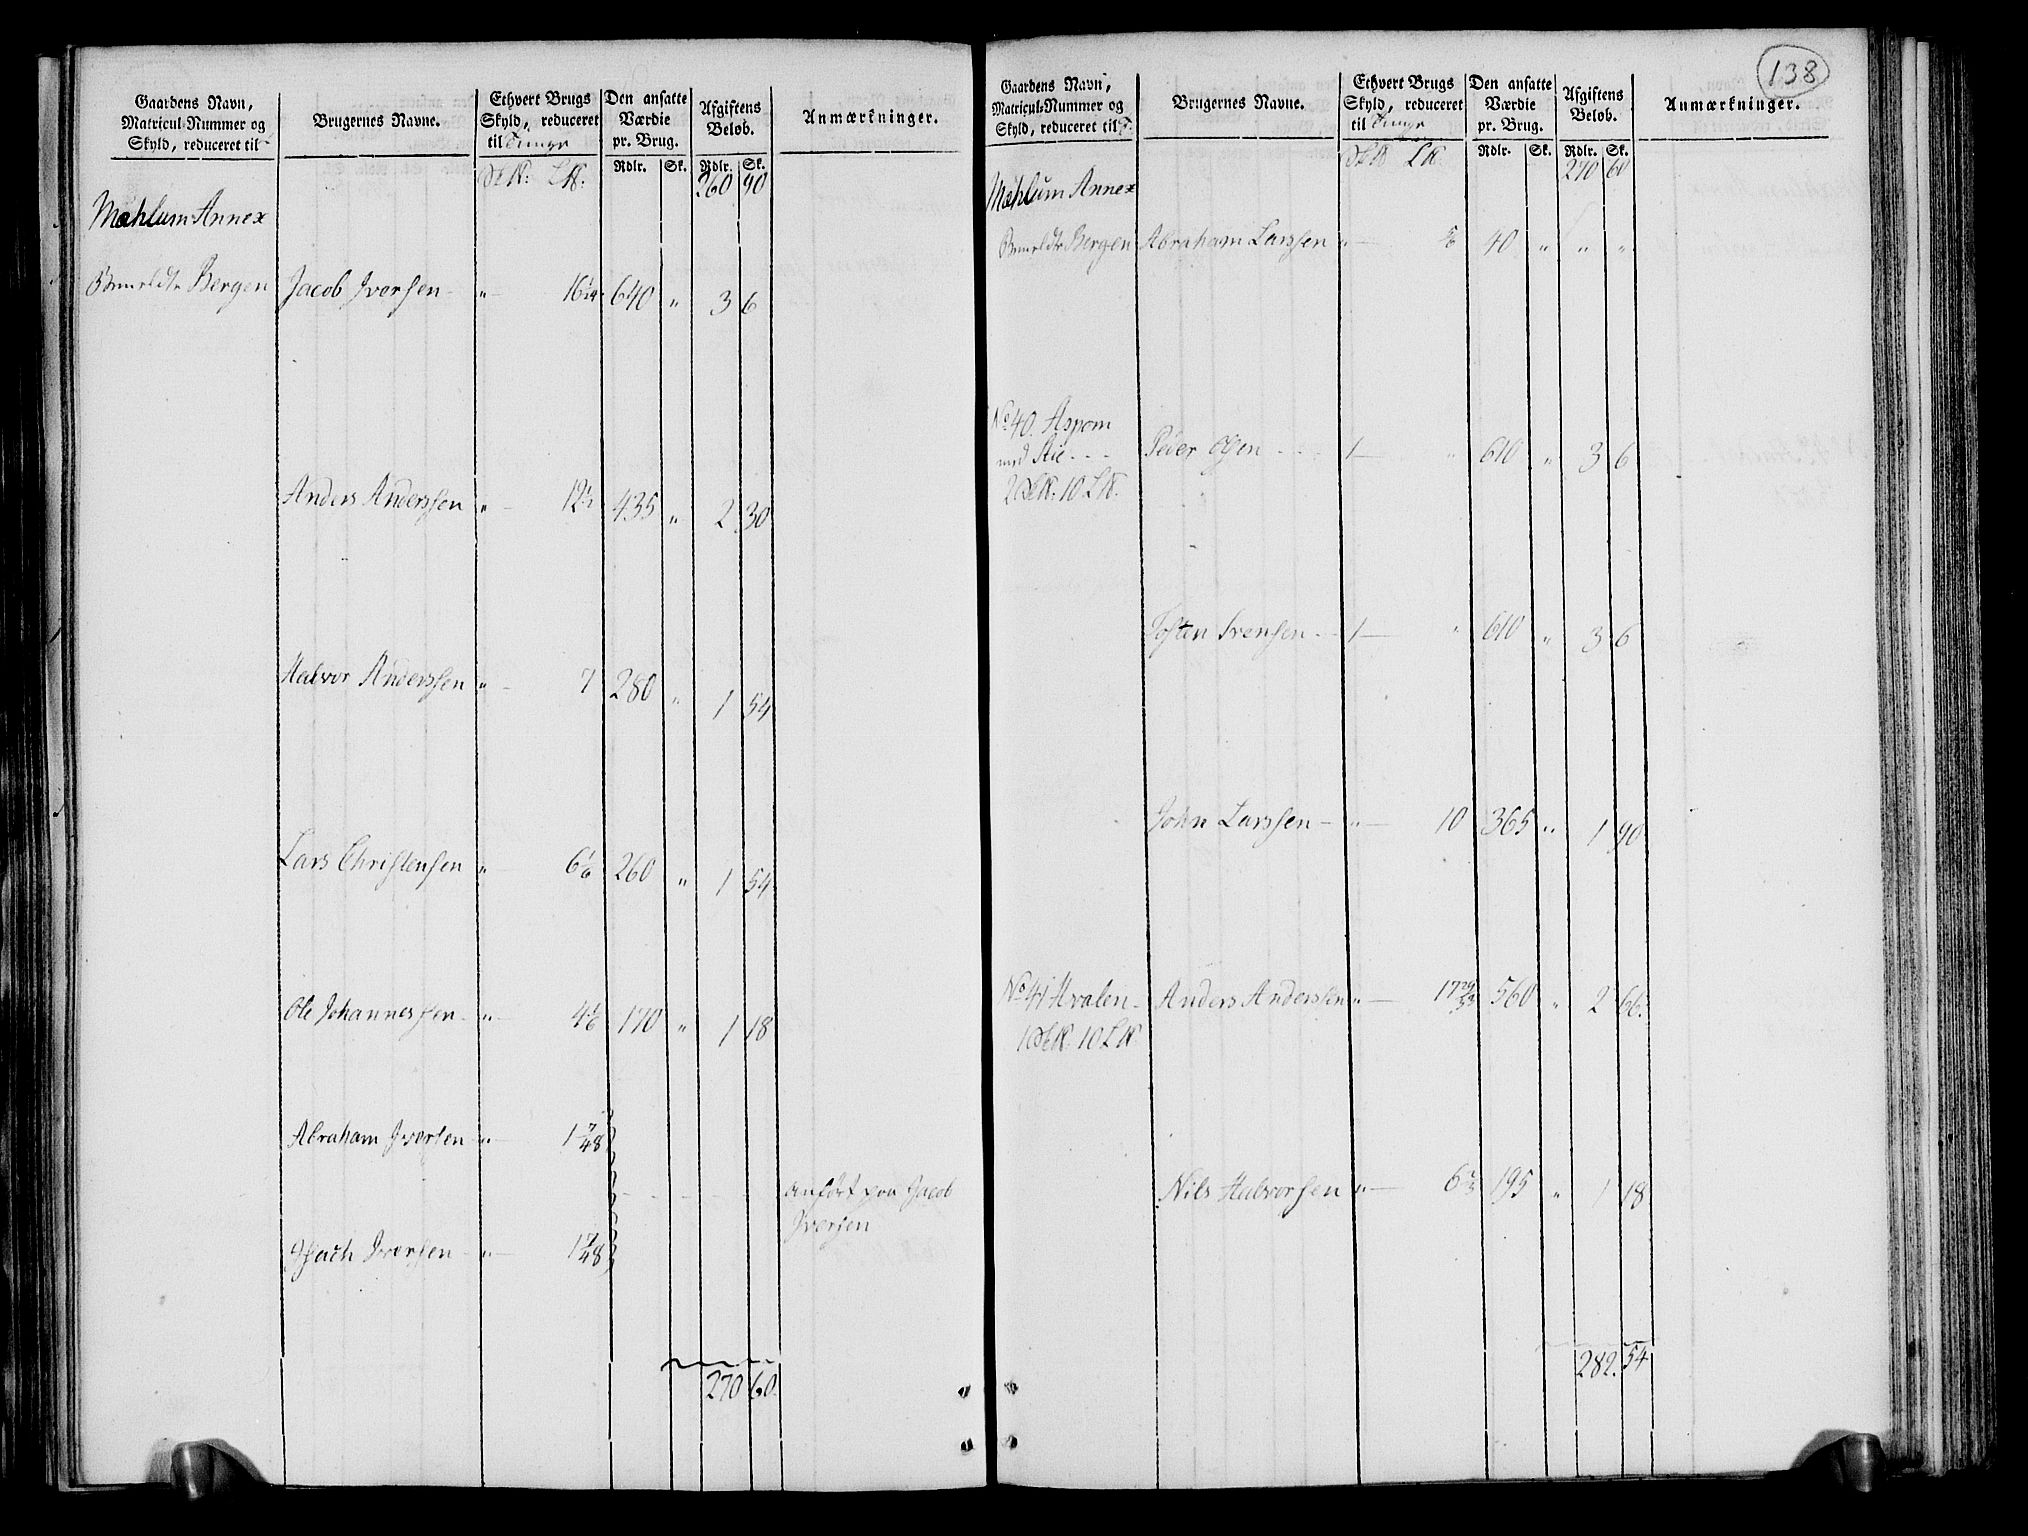 Gaardens Navn,
Matricul-Nummer og
Skyld, reduceret til
Brugernes Navne.
Ethvert Brugs
Skyld, reduceret
til Tunge
Den ansatte
Værdie
pr. Brug.
Afgiftens
Beløb.
Anmærkninger.
Rdlr. Sk. Rdlr. Sk.
260 90
Mæhlum Annex
Bergen Jacob Iversen " 16 640 " 3 6
Anders Anderssen " 12½ 435 " 2 30
Halvor Anderssen " 7 280 " 1 54
Lars Christensen " 6 1/6 260 " 1 54
Ole Johannessen " 4 1/6 170 " 1 18
Abraham Iversen " 1 7/48
anført paa Jacob
Iversen
Iversen " 1 7/48
270 60.
138
Gaardens Navn,
Matricul-Nummer og
Skyld, reduceret til T.
Brugernes Navne.
Ethvert Brugs
Skyld, reduceret
til Tunge
Den ansatte
Værdie
pr. Brug.
Afgiftens
Beløb.
Anmærkninger.
Rdlr. Sk. Rdlr. Sk.
270 60
Mæhlum Annex
Bergen Abraham Larssen " 40 " " "
No 40. Aspom
med Stie
Peder 1 " 610 " 3 6
Tosten 1 " 610 " 3 6
John Larssen " 10 365 " 1 90
No 41 Hvalen Anders Anderssen " 17 560 " 2 66.
Nils Halvorsen " 6 2/3 195 " 1 18
282. 54